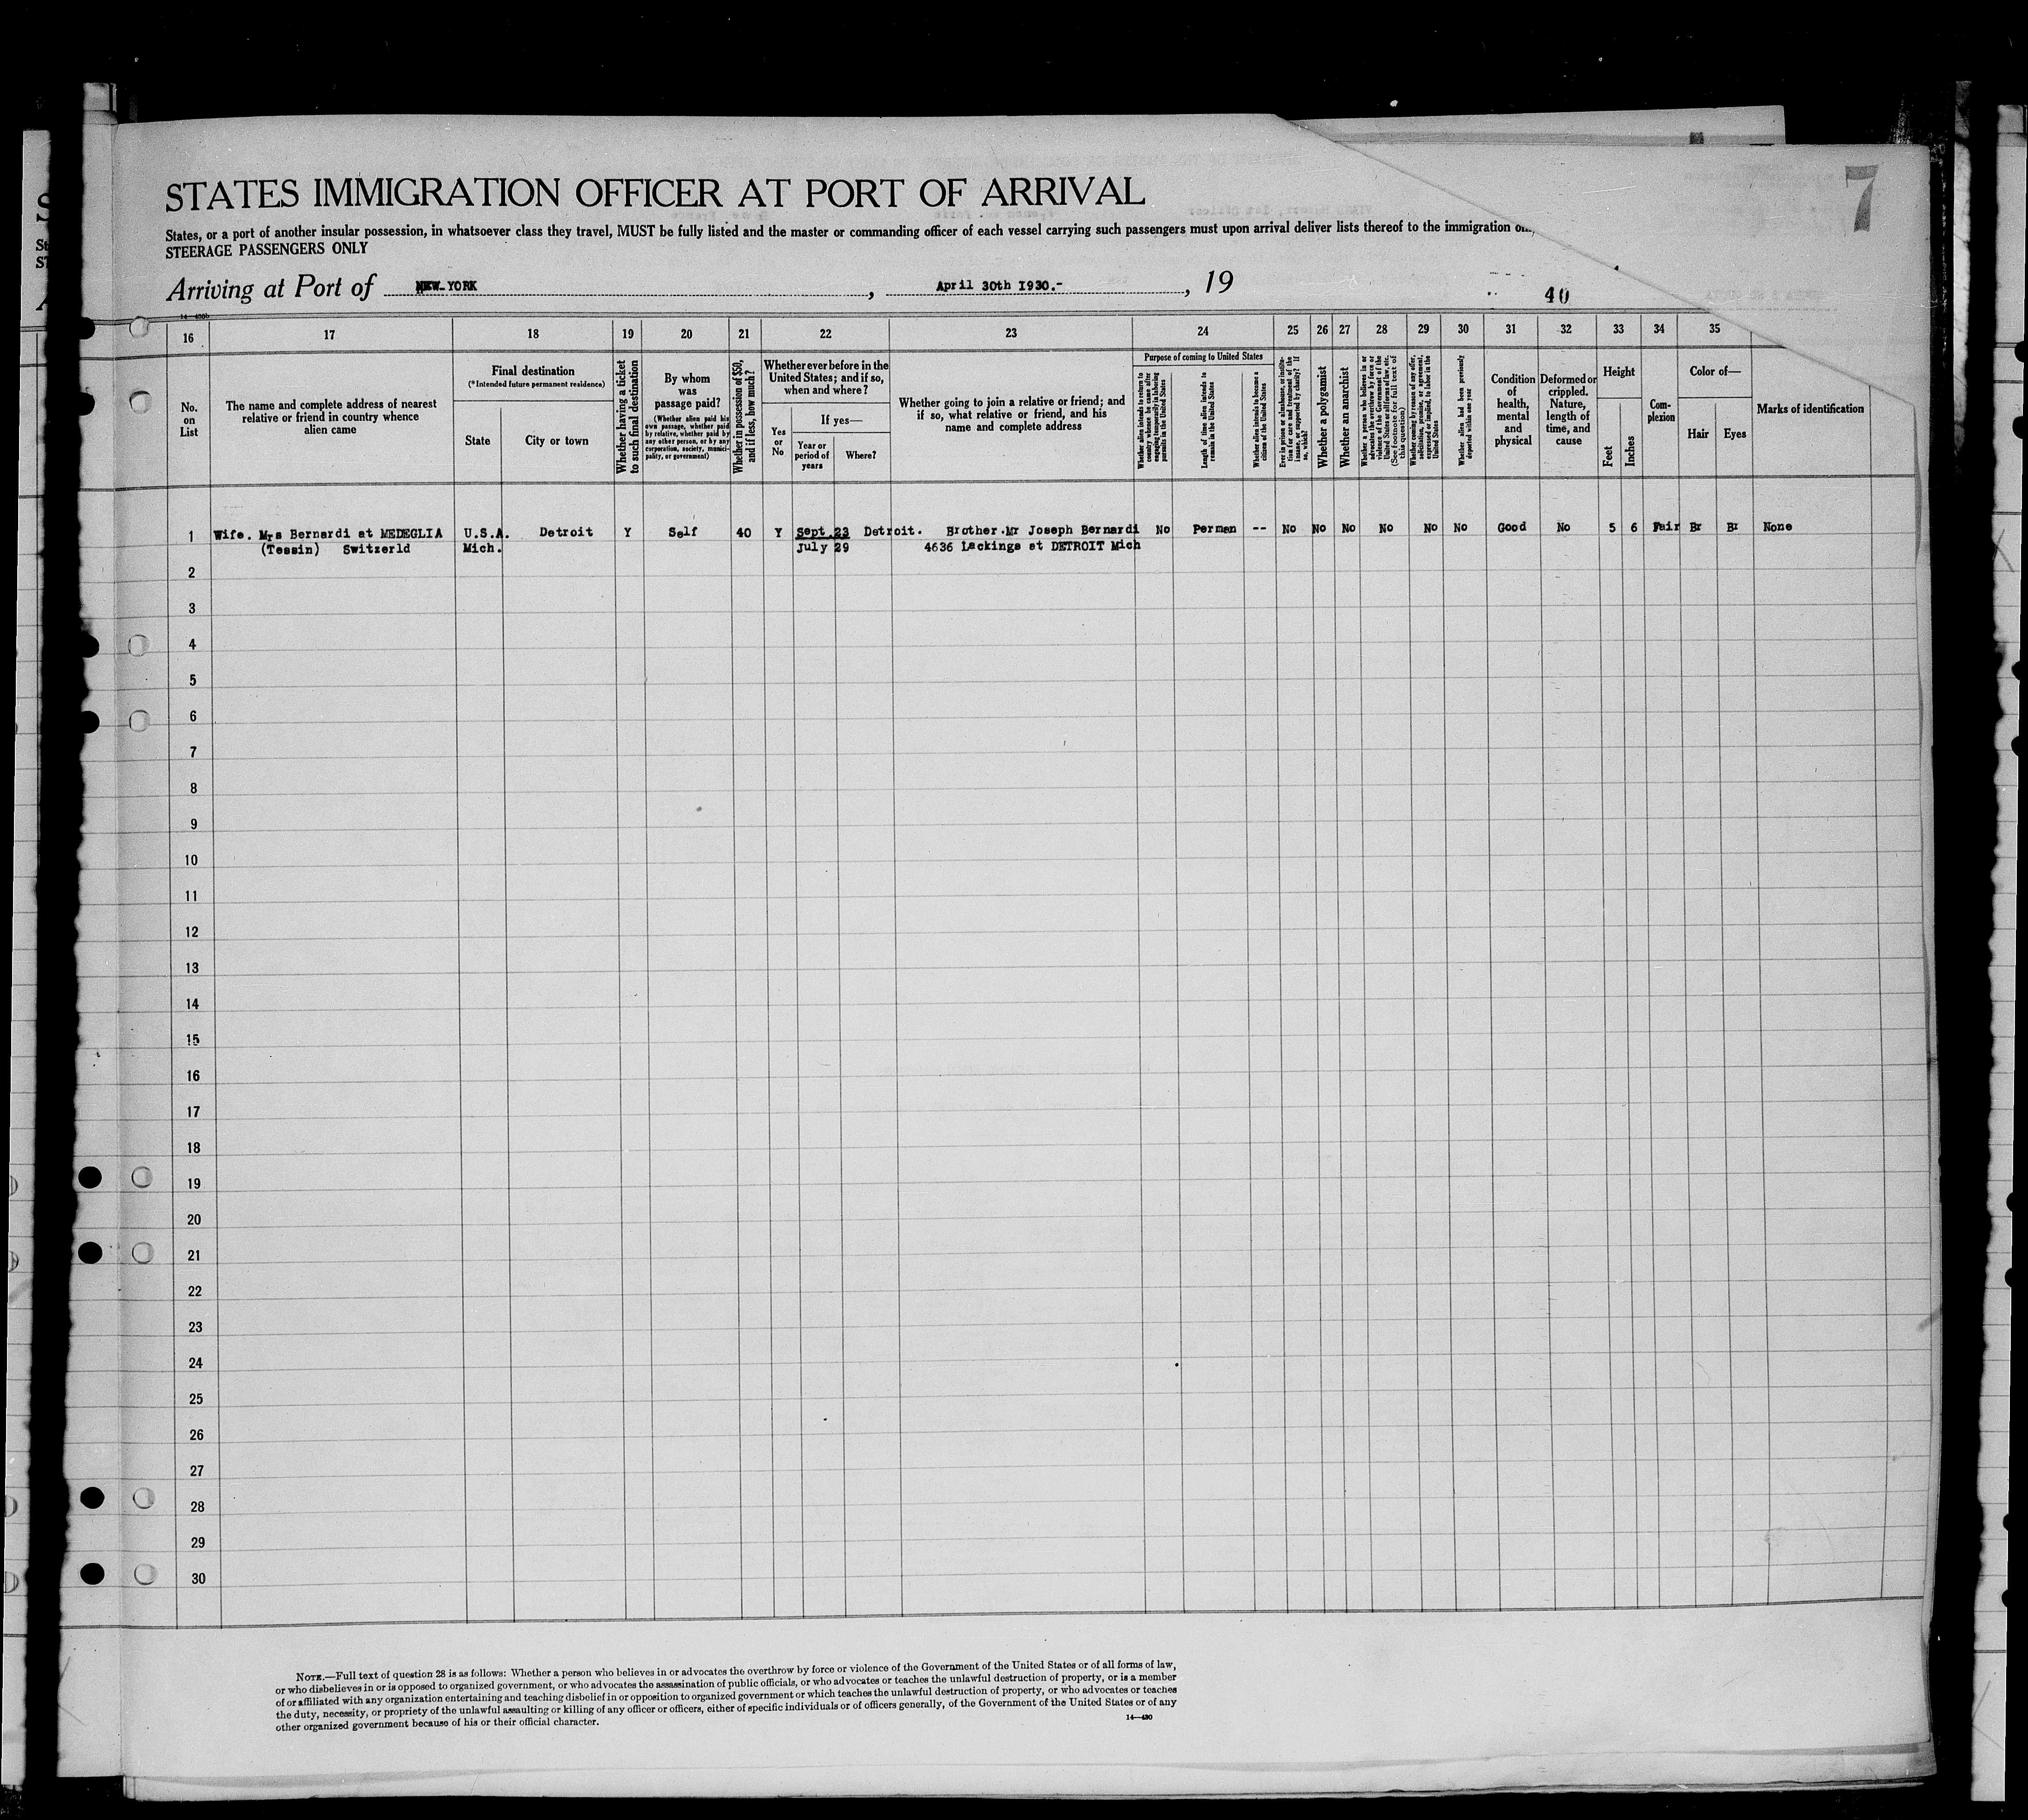 7
STATES IMMIGRATION OFFICER AT PORT OF ARRIVAL
States, or a port of another insular possession, in whatsoever class they travel, MUST be fully listed and the master or commanding officer of each vessel carrying such passengers must upon arrival deliver lists thereof to the immigration
STEERAGE PASSENGERS ONLY
Arriving at Port of NEW-YORK, April 30th 1930.-, 19
40
16 17 18 19 20 21 22 23 24 25 26 27 28 29 30 31 32 33 34 35
No. on List
The name and complete address of nearest
relative or friend in country whence
alien came
Final destination
(*Intended future permanent residence)
State
City or town
Whether having a ticket
to such final destination
By whom
was
passage paid?
(Whether alien paid his
own passage, whether paid
by relative, whether paid by
any other person, or by any
corporation, society, munici-
pality, or government)
Whether in possession of $50,
and if less, how much?
Whether ever before in the
United States; and if so,
when and where?
Yes
or
No
If yes—
Year or
period of
years
Where?
Whether going to join a relative or friend; and
if so, what relative or friend, and his
name and complete address
Purpose of coming to United States
Whether alien intends to return to
country whence he came after
engaging temporarily in laboring
pursuits in the United States
Length of time alien intends to
remain in the United States
Whether alien intends to become a
citizen of the United States
Ever in prison or almshouse, or institu-
tion for care and treatment of the
insane, or supported by charity? If
so, which?
Whether a polygamist
Whether an anarchist
Whether a person who believes in or
advocates the overthrow by force or
violence of the Government of the
United States or all forms of law, etc.
(See footnote for full text of
this question)
Whether coming by reason of any offer,
solicitation, promise, or agreement,
expressed or implied, to labor in the
United States
Whether alien had been previously
deported within one year
Condition
of
health,
mental
and
physical
Deformed or
crippled.
Nature,
length of
time, and
cause
Height
Feet
Inches
Com-
plexion
Color of—
Hair
Eyes
Marks of identification
1 Wife. Mrs Bernardi at MEDEGLIA U.S.A. Detroit Y Self 40 Y Sept 23 Detroit. Brother.Mr Joseph Bernardi No Perman -- No No No No No No Good No 5 6 Fair Br Br None
(Tessin) Switzerld Mich. July 29 4636 Lackings at DETROIT Mich
2
3
4
5
6
7
8
9
10
11
12
13
14
15
16
17
18
19
20
21
22
23
24
25
26
27
28
29
30
NOTE.—Full text of question 28 is as follows: Whether a person who believes in or advocates the overthrow by force or violence of the Government of the United States or of all forms of law,
or who disbelieves in or is opposed to organized government, or who advocates the assassination of public officials, or who advocates or teaches the unlawful destruction of property, or is a member
of or affiliated with any organization entertaining and teaching disbelief in or opposition to organized government or which teaches the unlawful destruction of property, or who advocates or teaches
the duty, necessity, or propriety of the unlawful assaulting or killing of any officer or officers, either of specific individuals or of officers generally, of the Government of the United States or of any
other organized government because of his or their official character.
14—430